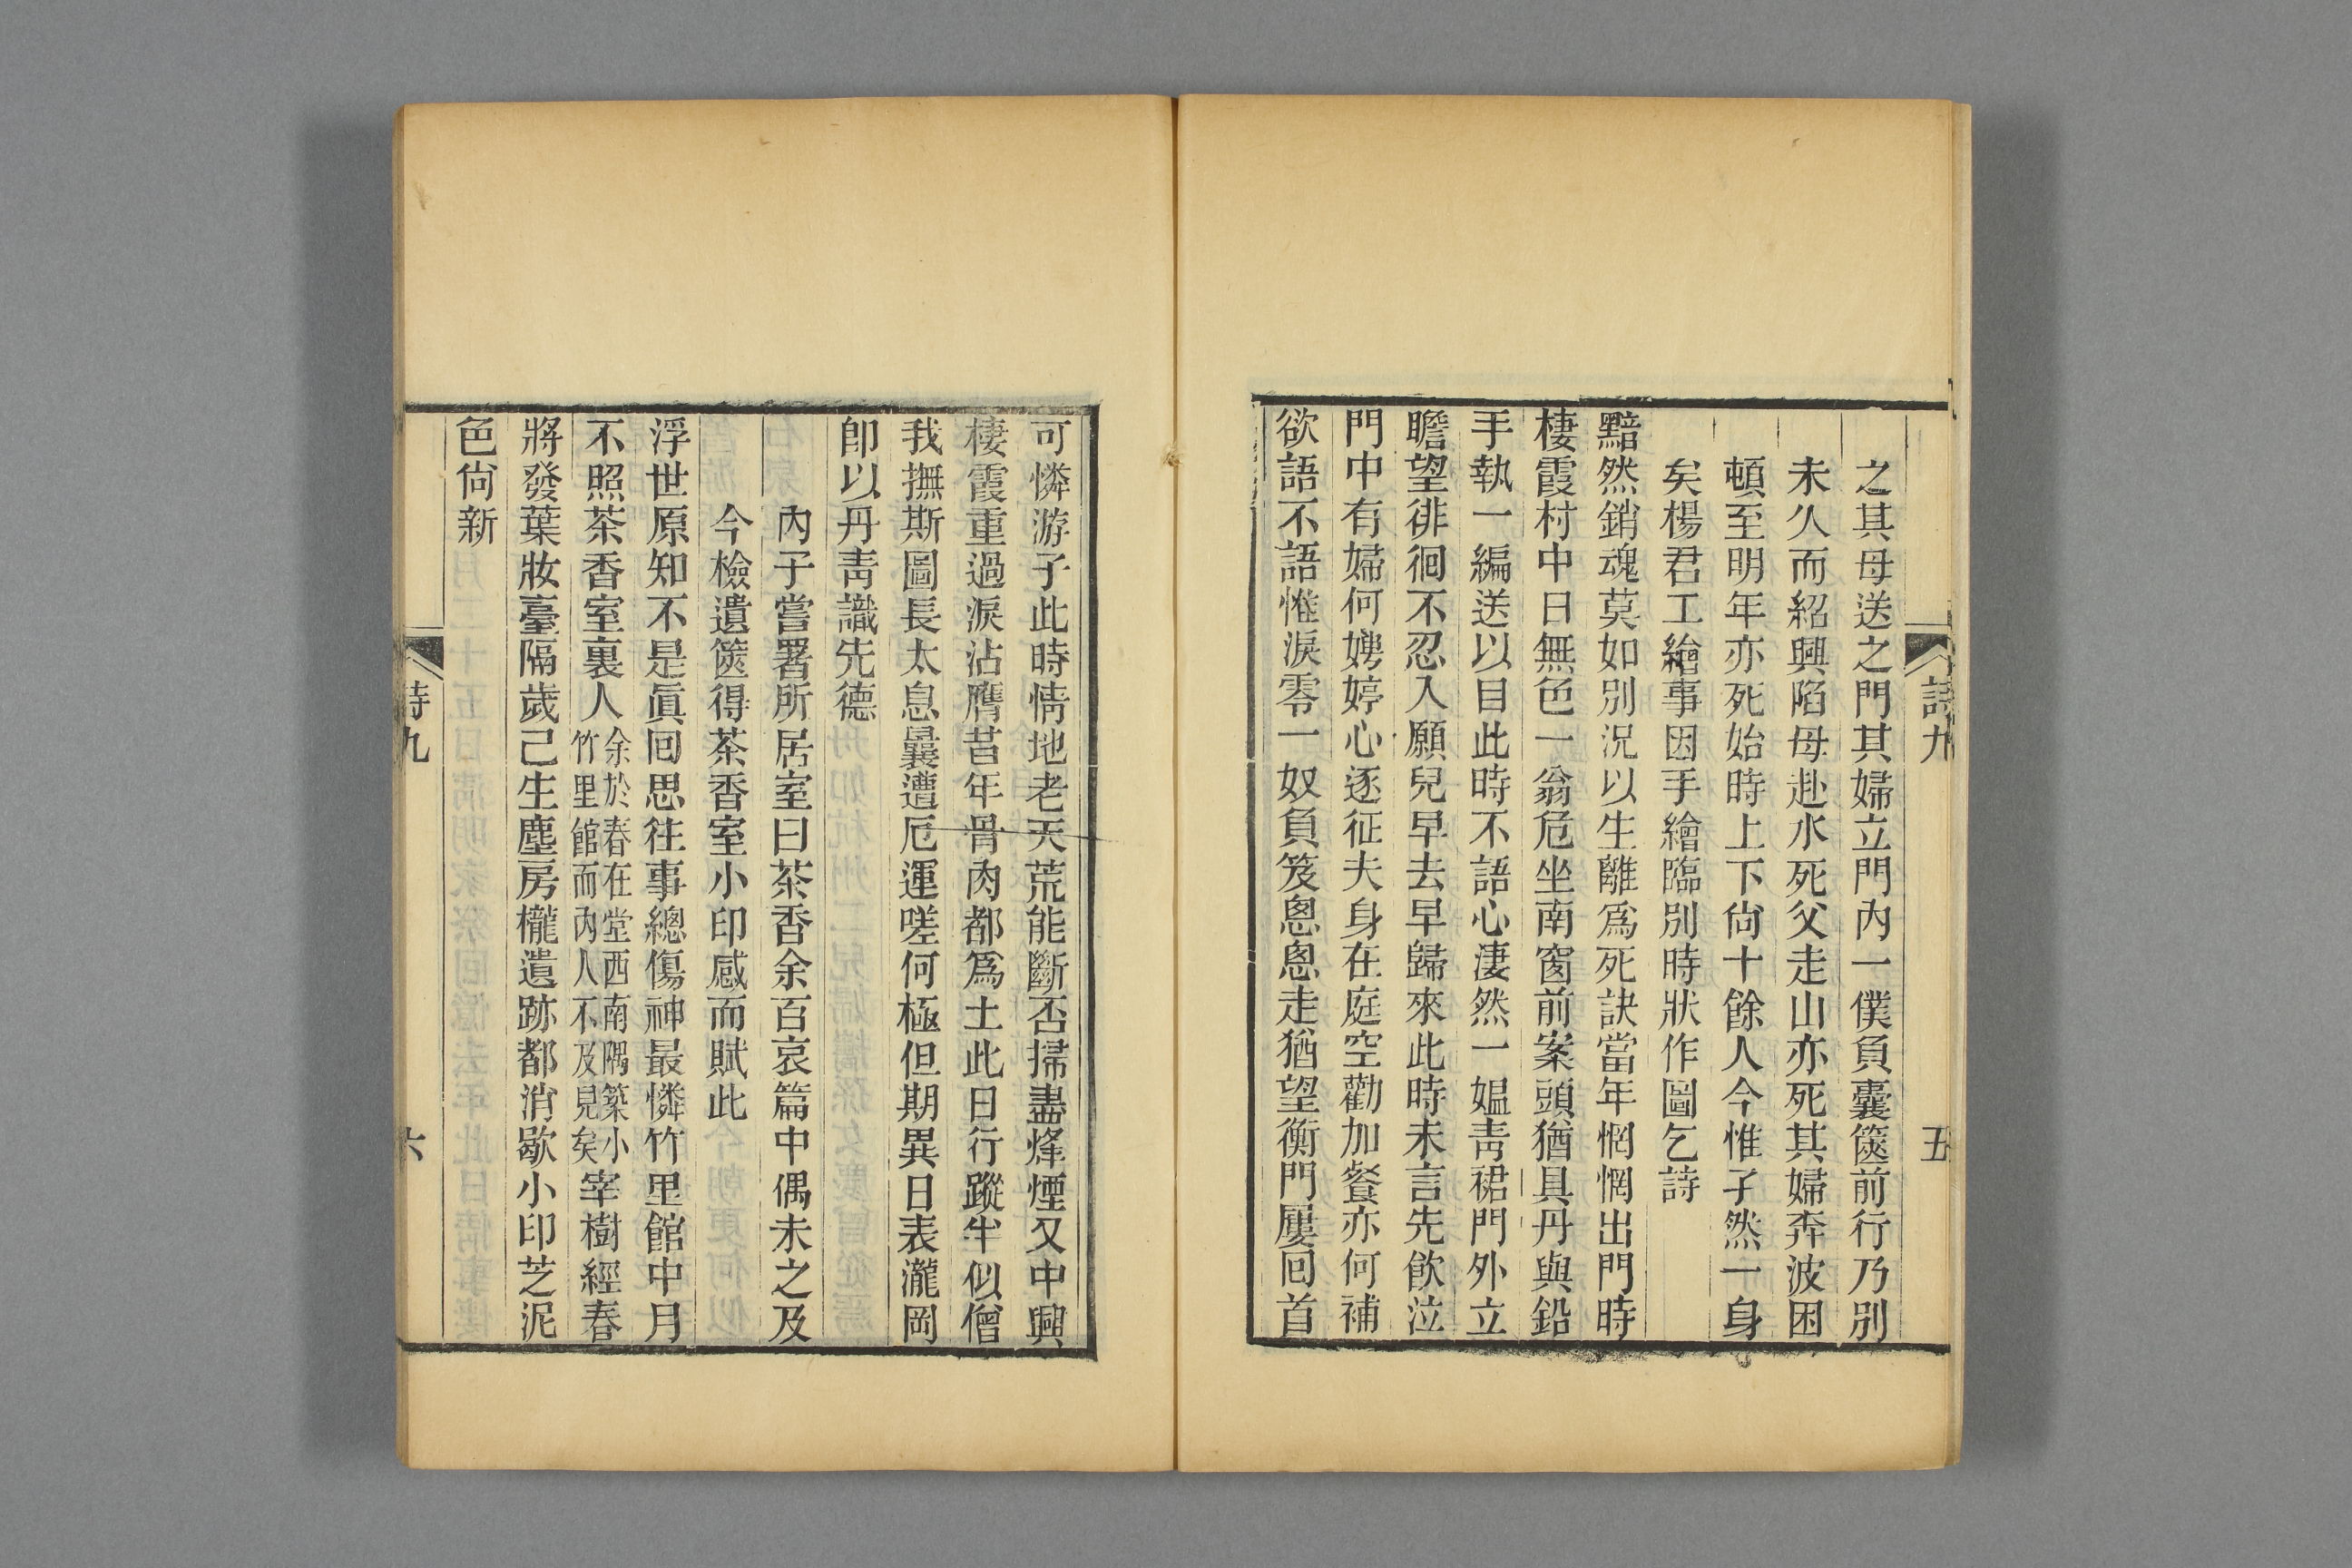 詩九
五
之其母送之門其婦立門內一僕負囊篋前行乃別
未久而紹興陷母赴水死父走山亦死其婦奔波困
頓至明年亦死始時上下尙十餘人今惟孑然一身
矣楊君工繪事因手繪臨別時狀作圖乞詩
黯然銷魂莫如別況以生離爲死訣當年惘惘出門時
棲霞村中日無色一翁危坐南窗前案頭猶具丹與鉛
手執一編送以目此時不語心淒然一媼靑裙門外立
瞻望徘徊不忍入願兒早去早歸來此時未言先飮泣
門中有婦何娉婷心逐征夫身在庭空勸加餐亦何補
欲語不語惟淚零一奴負笈悤悤走猶望衡門屢回首
可憐游子此時情地老天荒能斷否掃盡烽煙又中興
棲霞重過淚沾膺昔年骨肉都爲土此日行蹤半似僧
我撫斯圖長太息曩遭厄運嗟何極但期異日表瀧岡
卽以丹靑識先德
內子嘗署所居室曰茶香余百哀篇中偶未之及
今檢遺篋得茶香室小印感而賦此
浮世原知不是眞回思往事總傷神最憐竹里館中月
不照茶香室裏人余於春在堂西南隅築小竹里館而內人不及見矣宰樹經春
將發葉妝臺隔歲已生塵房櫳遺跡都消歇小印芝泥
色尙新
詩九
六